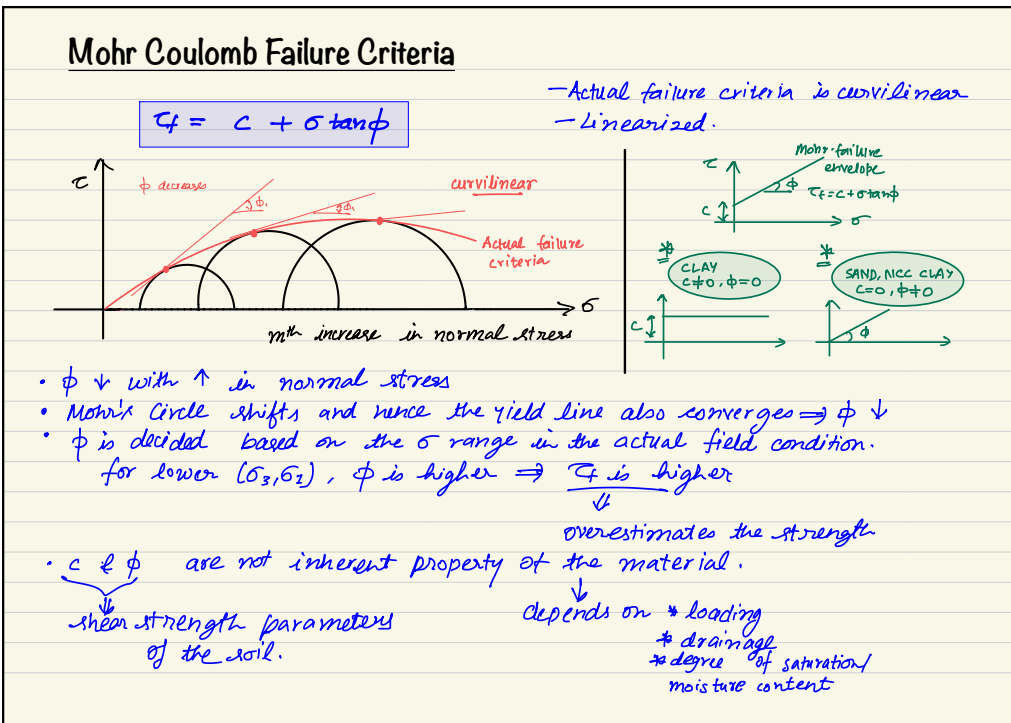 Mohr Coulomb Failure Criteria
τf = c + σ tanϕ
— Actual failure criteria is curvilinear
— Linearized.
τ
ϕ decreases
ϕ1
ϕ2
curvilinear
Actual failure
criteria
σ
mth increase in normal stress
τ
Mohr-failure
envelope
ϕ
τf = c + σ tanϕ
c
σ
*
CLAY
C≠0, ϕ=0
c
*
SAND, NCC CLAY
C=0, ϕ≠0
ϕ
• ϕ ↓ with ↑ in normal stress
• Mohr's Circle shifts and hence the yield line also converges ⇒ ϕ ↓
• ϕ is decided based on the σ range in the actual field condition.
for lower (σ3, σ1), ϕ is higher ⇒ τf is higher
⇓
overestimates the strength
• c & ϕ are not inherent property of the material.
⇓
shear strength parameters
of the soil.
↓
depends on * loading
* drainage
* degree of saturation/
moisture content